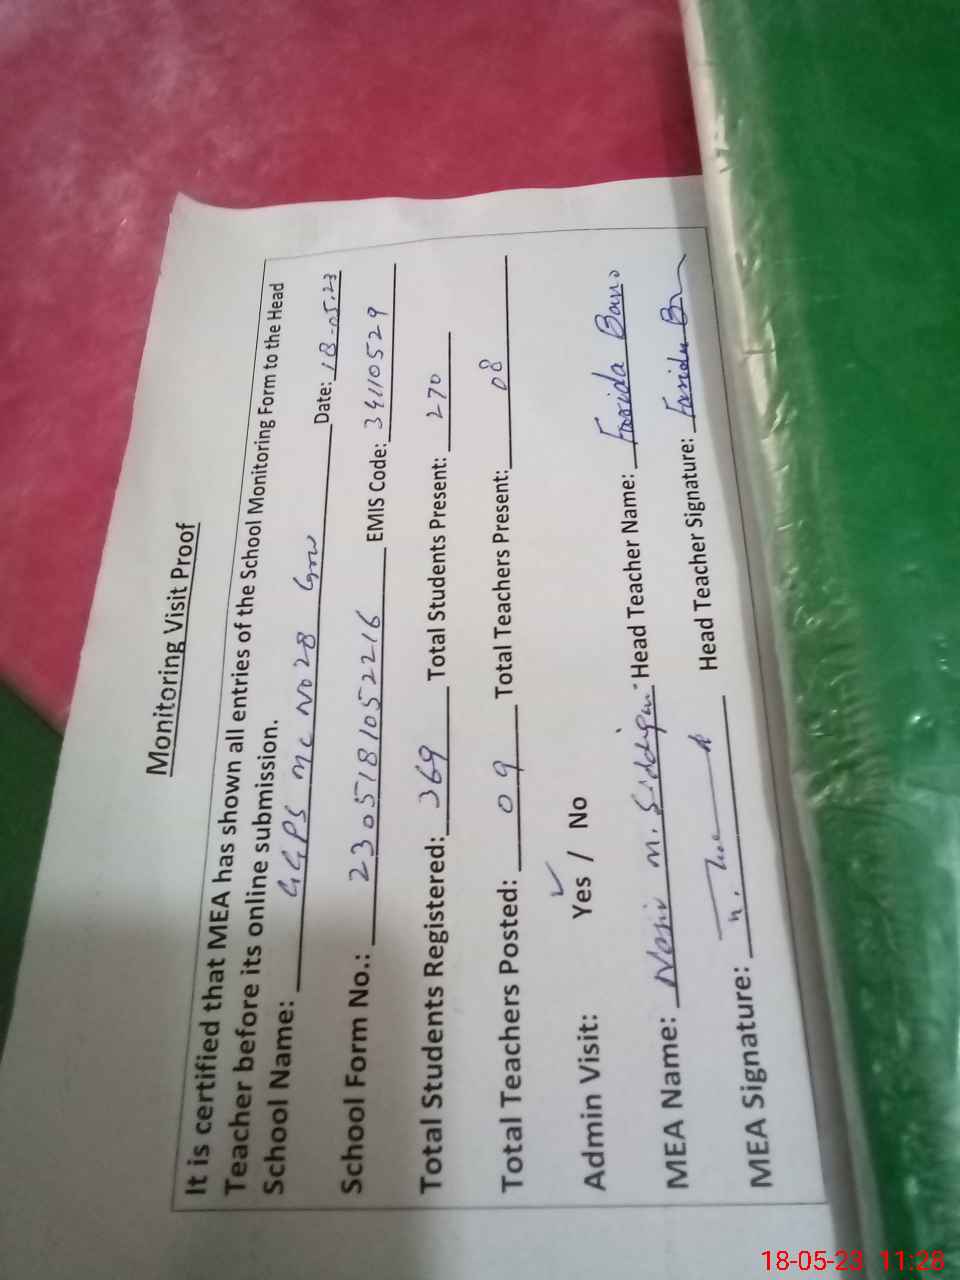 Monitoring Visit Proof
It is certified that MEA has shown all entries of the School Monitoring Form to the Head
Teacher before its online submission.
School Name: GGPS MC NO 28 Date: 18-05-23
School Form No.: 2305181052216 EMIS Code: 34110529
Total Students Registered: 369 Total Students Present: 270
Total Teachers Posted: 09 Total Teachers Present: 08
Admin Visit: Yes / No
MEA Name: M. Head Teacher Name: Farida Bano
MEA Signature: Head Teacher Signature: Farida
18-05-23 11:28